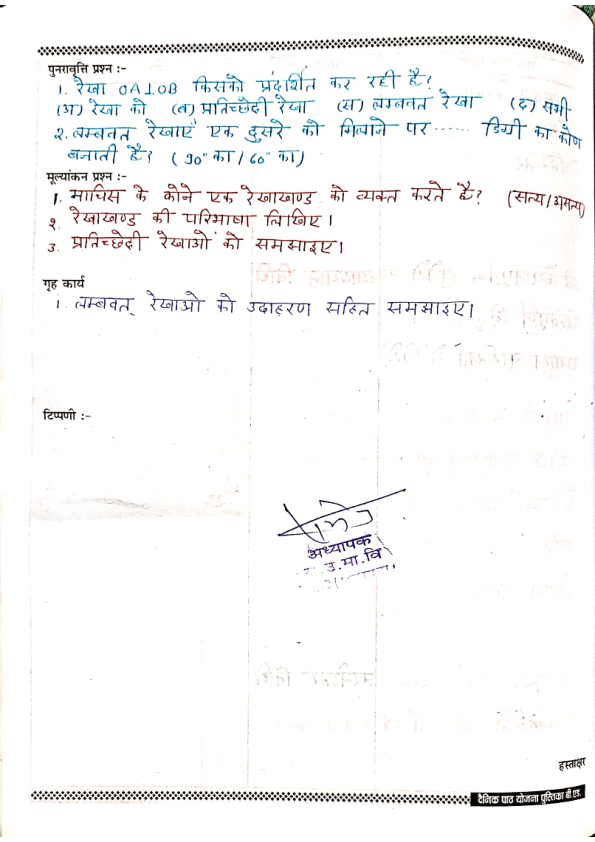 पुनरावृत्ति प्रश्न :-
1. रेखा OA⊥OB किसको प्रदर्शित कर रही है?
(अ) रेखा को (ब) प्रतिच्छेदी रेखा (स) लम्बवत रेखा (द) सभी
2. लम्बवत रेखाएँ एक दुसरे को मिलाने पर ...... डिग्री का कोण
बनाती है? (90° का / 60° का)
मूल्यांकन प्रश्न :-
1. माचिस के कोने एक रेखाखण्ड को व्यक्त करते है? (सत्य/असत्य)
२. रेखाखण्ड की परिभाषा लिखिए।
3. प्रतिच्छेदी रेखाओं को समझाइए।
गृह कार्य
1. लम्बवत् रेखाओ को उदाहरण सहित समझाइए।
टिप्पणी :-
अध्यापक
उ.मा.वि
हस्ताक्षर
दैनिक पाठ योजना पुस्तिका बी.एड.